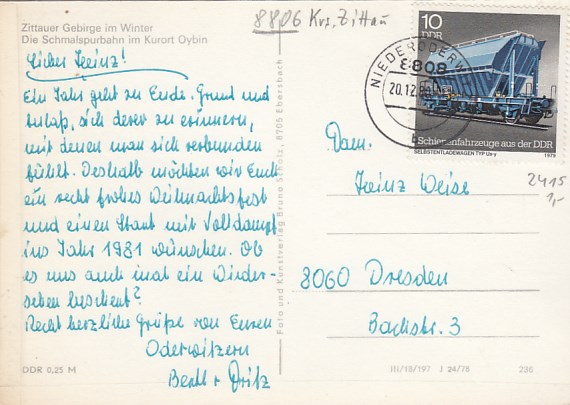 8806 Krs. Zittau
Zittauer Gebirge im Winter
Die Schmalspurbahn im Kurort Oybin
Lieber Heinz!
Ein Jahr geht zu Ende. Grund und
Anlaß, sich derer zu erinnern,
mit denen man sich verbunden
fühlt. Deshalb möchten wir Euch
ein recht frohes Weihnachtsfest
und einen Start mit Volldampf
ins Jahr 1981 wünschen. Ob
es uns auch mal ein Wieder-
sehen beschert?
Recht herzliche Grüße von Euren
Oderwitzern
DDR 0,25 M
Foto und Kunstverlag Bruno Scholz, 8705 Ebersbach
10
DDR
NIEDERODERW
8808
20.12.80
Schienenfahrzeuge aus der DDR
SELBSTENTLADEWAGEN TYP Us-y
1979
2415
1,-
Fam.
Heinz Weise
8060 Dresden
Bachstr. 3
III/18/197 J 24/78
236